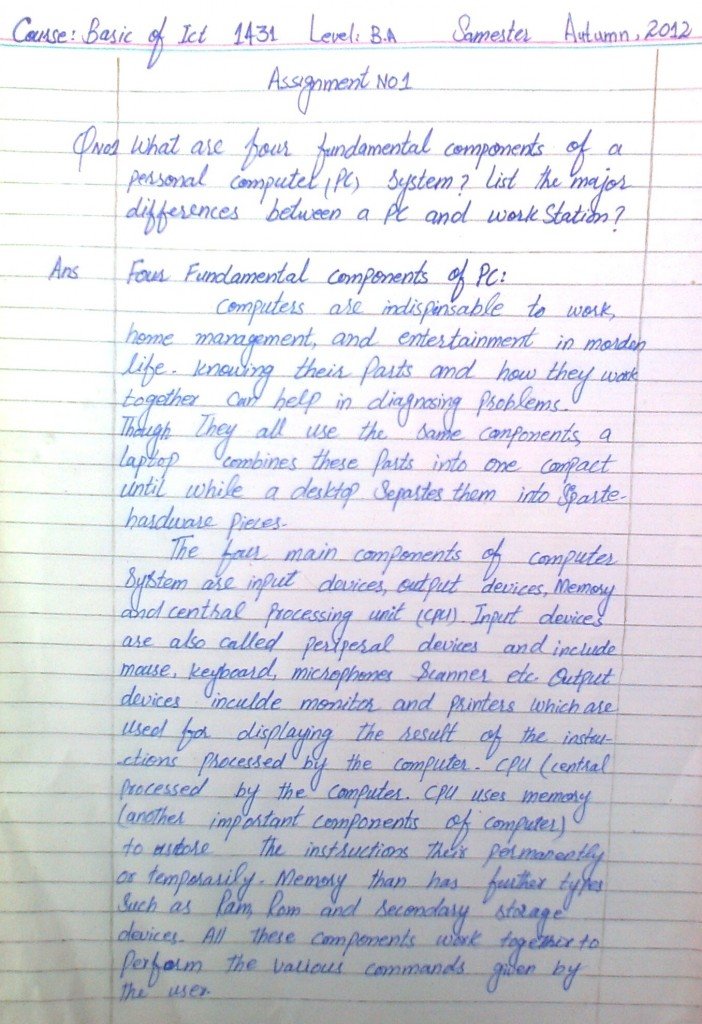 Course: Basic of Ict 1431 Level: B.A Samester Autumn, 2012
Assignment No1
QNo1 What are four fundamental components of a
personal computer, (PC) System? List the major
differences between a PC and work Station?
Ans Four Fundamental components of PC:
Computers are indispinsable to work,
home management, and entertainment in morden
life. knowing their Parts and how they work
together can help in diagnosing Problems.
Though They all use the same components, a
laptop combines these Parts into one compact
until while a desktop Separtes them into Sparte-
hardware Pieces.
The four main components of computer
System are input davices, output devices, Memory
and central Processing unit (CPU) Input devices
are also called perperal devices and include
mouse, keyboard, microphones Scanner etc. Output
devices inculde monitor and printers which are
used for displaying the result of the instru-
ctions processed by the computer. CPU (central
Processed by the computer. CPU uses memory
(another important components of computer)
to restore the instructions their permanently
or temporarily. Memory than has further types
Such as Ram, Rom and secondary storage
devices. All these components work together to
Perform the various commands given by
the user.